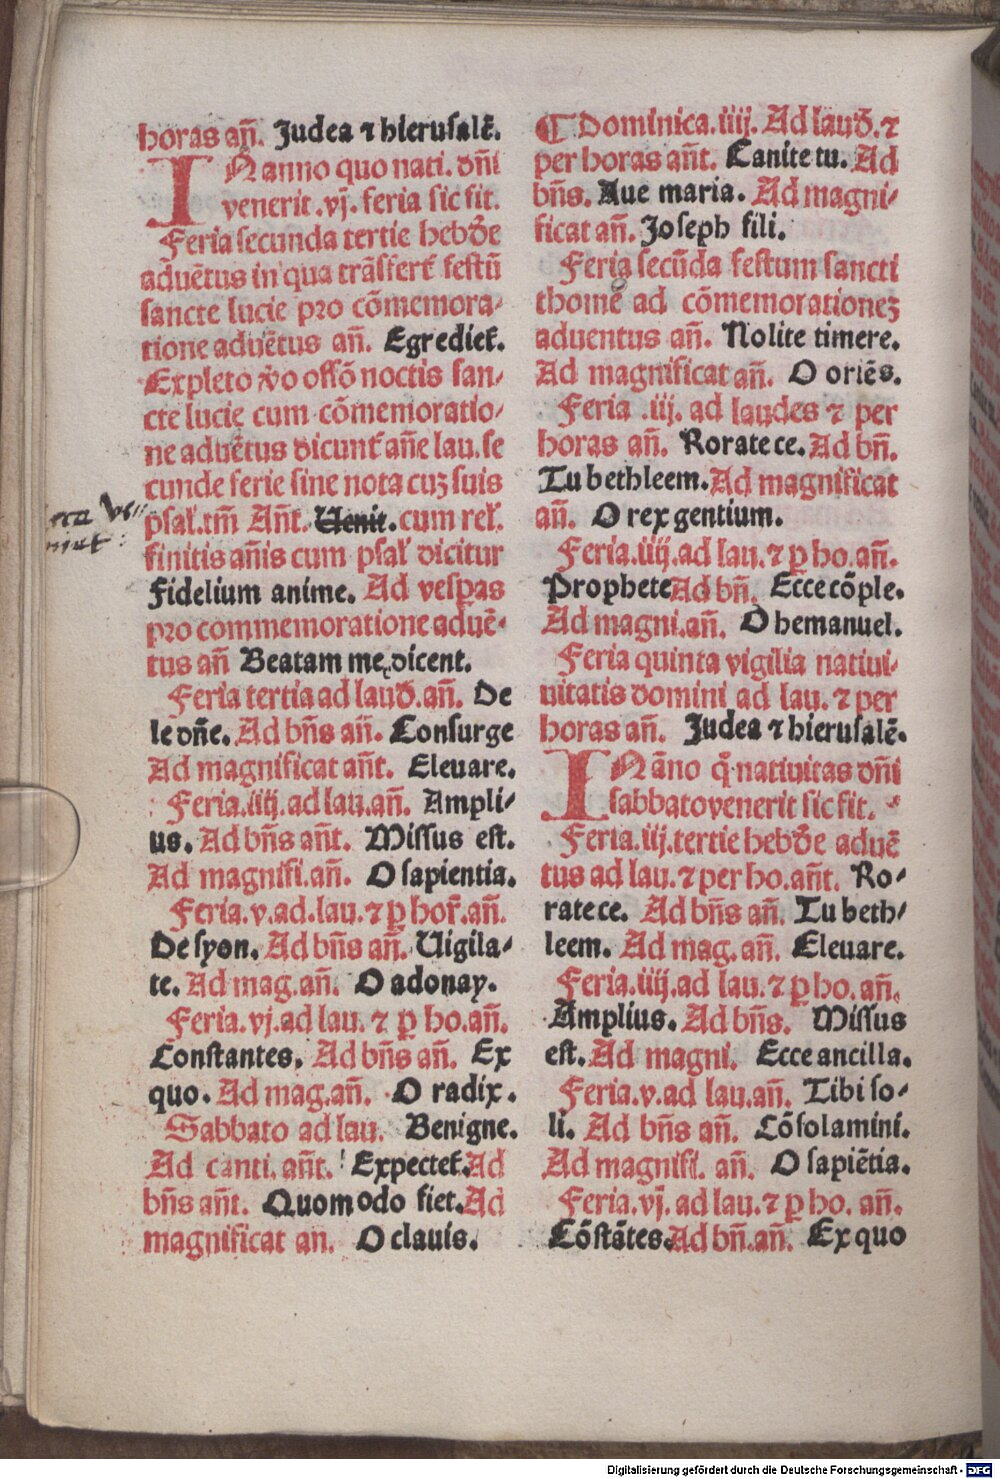 horas añ. Judea ⁊ hierusalē.
IN anno quo nati. dñi
venerit .vj. feria sic fit.
Feria secunda tertie hebđe
aduētus in qua trāsfert̄ festū
sancte lucie pro cōmemora⸗
tione aduētus añ. Egrediet̄.
Expleto v̄o offō noctis san⸗
cte lucię cum cōmemoratio⸗
ne aduētus dicunt̄ añe lau. se
cunde ferie sine nota cuꝫ suis
psal̄. tm̄ Añt. Uenit. cum rel̄.
finitis añis cum psal̄ dicitur
Fidelium anime. Ad vesꝑas
pro commemoratione aduē⸗
tus añ Beatam me dicent.
Feria tertia ad lauđ. añ. De
le dñe. Ad bñs añ. Consurge
Ad magnificat añt. Eleuare.
Feria. iiij. ad lau. añ. Ampli⸗
us. Ad bñs añt. Missus est.
Ad magnifi. añ. O sapientia.
Feria. v. ad. lau. ⁊ ꝑ hor̄. añ.
De syon. Ad bñs añ. Uigila⸗
te. Ad mag. añ. O adonay.
Feria. vj. ad lau. ⁊ ꝑ ho. añ.
Constantes. Ad bñs añ. Ex
quo. Ad mag. añ. O radix.
Sabbato ad lau. Benigne.
Ad canti. añt. Expectet̄. Ad
bñs añt. Quomodo fiet. Ad
magnificat añ. O clauis.
¶ Dominica. iiij. Ad lauđ. ⁊
per horas añt. Canite tu. Ad
bñs. Aue maria. Ad magni⸗
ficat añ. Joseph fili.
Feria secūda festum sancti
thome ad cōmemorationeꝫ
aduentus añ. Nolite timere.
Ad magnificat añ. O oriēs.
Feria .iij. ad laudes ⁊ per
horas añ. Rorate ce. Ad bñ.
Tu bethleem. Ad magnificat
añ. O rex gentium.
Feria. iiij. ad lau. ⁊ ꝑ ho. añ.
Prophete Ad bñ. Ecce cōple.
Ad magni. añ. O hemanuel.
Feria quinta vigilia natiui⸗
uitatis domini ad lau. ⁊ per
horas añ. Judea ⁊ hierusalē.
IN āno q̄ natiuitas dñi
sabbato venerit sic fit.
Feria. iij. tertie hebđe aduē
tus ad lau. ⁊ per ho. añt. Ro⸗
rate ce. Ad bñs añ. Tu beth⸗
leem. Ad mag. añ. Eleuare.
Feria. iiij. ad lau. ⁊ ꝑ ho. añ.
Amplius. Ad bñs. Missus
est. Ad magni. Ecce ancilla.
Feria. v. ad lau. añ. Tibi so⸗
li. Ad bñs añ. Cōsolamini.
Ad magnifi. añ. O sapiētia.
Feria. vj. ad lau. ⁊ ꝑ ho. añ.
Cōstātes. Ad bñ. añ. Ex quo
Digitalisierung gefördert durch die Deutsche Forschungsgemeinschaft - DFG